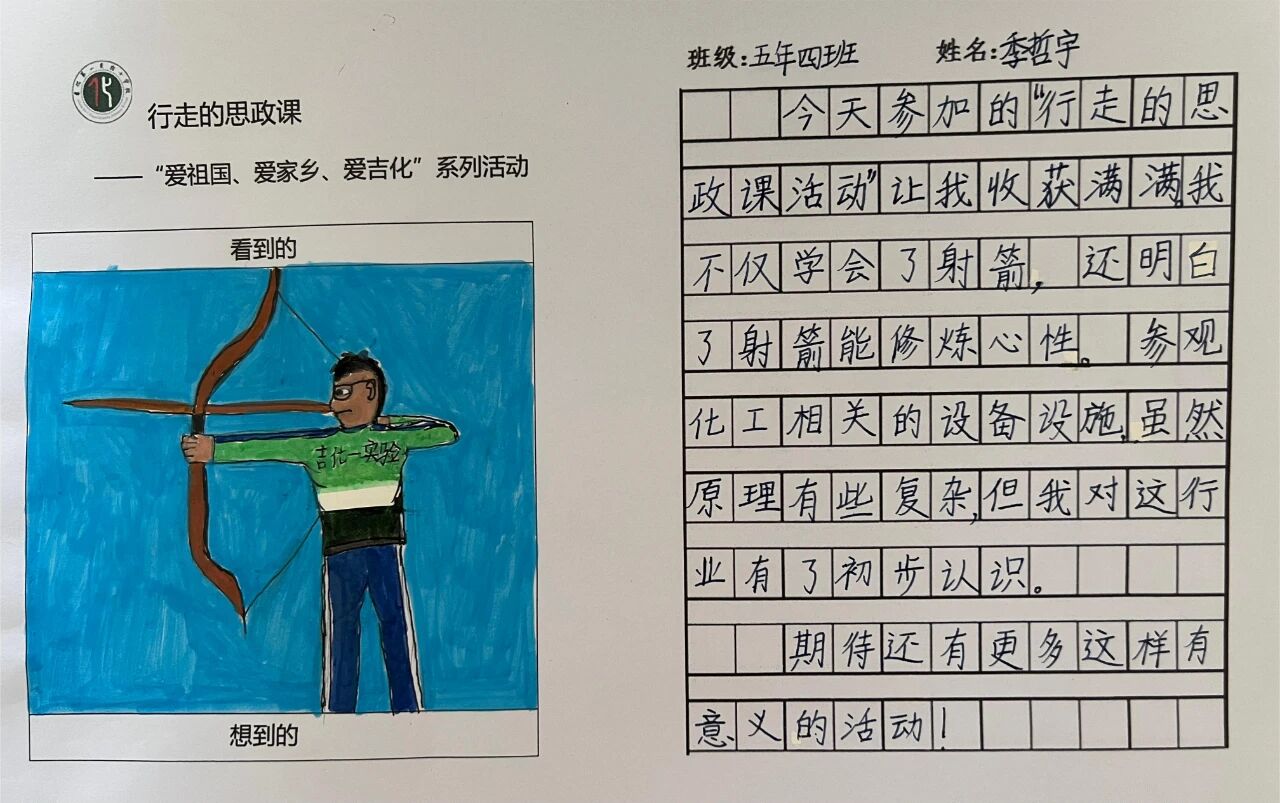 行走的思政课
——“爱祖国、爱家乡、爱吉化”系列活动
看到的
吉化一实验
想到的
班级:五年四班 姓名:季哲宇
今天参加的“行走的思
政课活动”让我收获满满,我
不仅学会了射箭,还明白
了射箭能修炼心性。参观
化工相关的设备设施,虽然
原理有些复杂,但我对这行
业有了初步认识。
期待还有更多这样有
意义的活动!